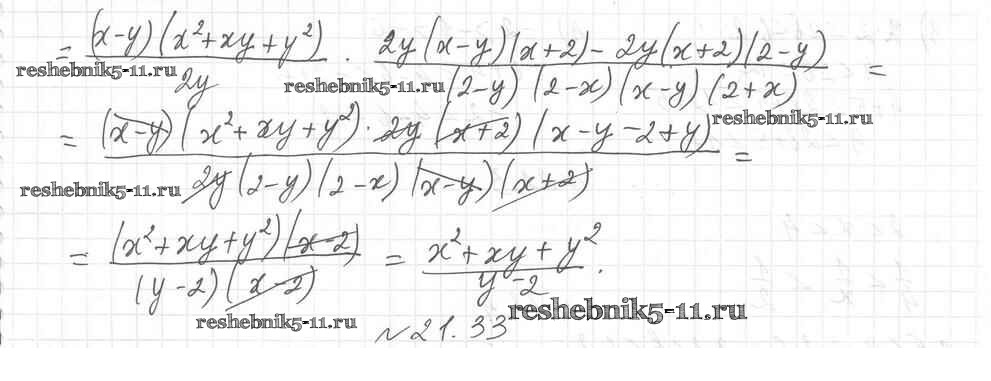 = (x-y)(x²+xy+y²) / 2y · 2y(x-y)(x+2) - 2y(x+2)(2-y) / (2-y)(2-x)(x-y)(2+x) =
reshebnik5-11.ru reshebnik5-11.ru
= (x-y)(x²+xy+y²)·2y(x+2)(x-y-2+y) / 2y(2-y)(2-x)(x-y)(x+2) =
reshebnik5-11.ru
reshebnik5-11.ru
= (x²+xy+y²)(x-2) / (y-2)(x-2) = x²+xy+y² / y-2 .
reshebnik5-11.ru reshebnik5-11.ru
№21.33